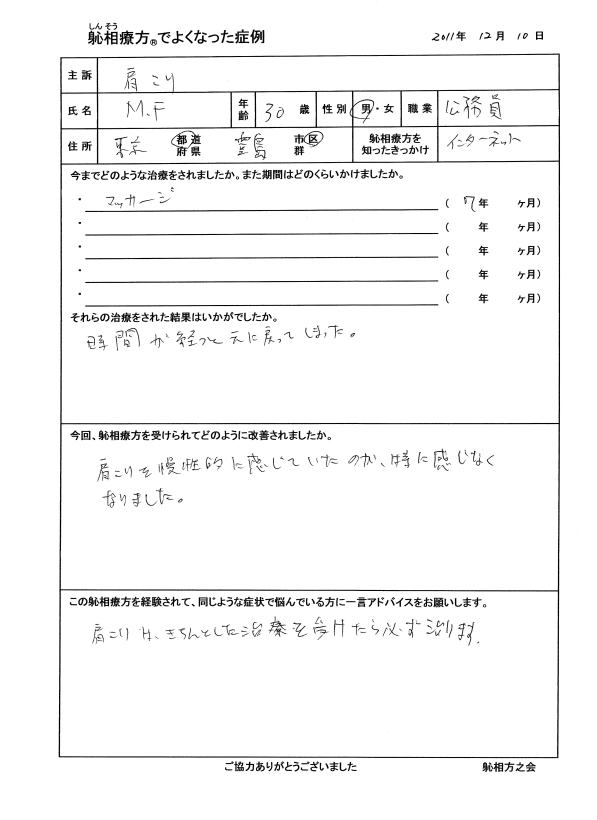 しん そう
恥相療方®でよくなった症例 2011年 12月 10日
主訴 肩こり
氏名 M.F 年齢 30歳 性別 男・女 職業 公務員
住所 東京 都道府県 豊島 市区群 恥相療方を知ったきっかけ インターネット
今までどのような治療をされましたか。また期間はどのくらいかけましたか。
・ マッサージ ( 7年 ヶ月)
・ ( 年 ヶ月)
・ ( 年 ヶ月)
・ ( 年 ヶ月)
・ ( 年 ヶ月)
それらの治療をされた結果はいかがでしたか。
時間が経つと元に戻ってしまった。
今回、恥相療方を受けられてどのように改善されましたか。
肩こりを慢性的に感じていたのが、特に感じなく
なりました。
この恥相療方を経験されて、同じような症状で悩んでいる方に一言アドバイスをお願いします。
肩こりは、きちんとした治療を受けたら必ず治ります。
ご協力ありがとうございました 恥相方之会